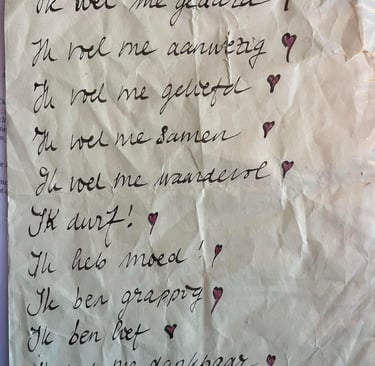 Ik voel me
Ik voel me aanwezig
Ik voel me geliefd
Ik voel me samen
Ik voel me waardevol
Ik durf!
Ik heb moed!
Ik ben grappig
Ik ben lief
me dankbaar